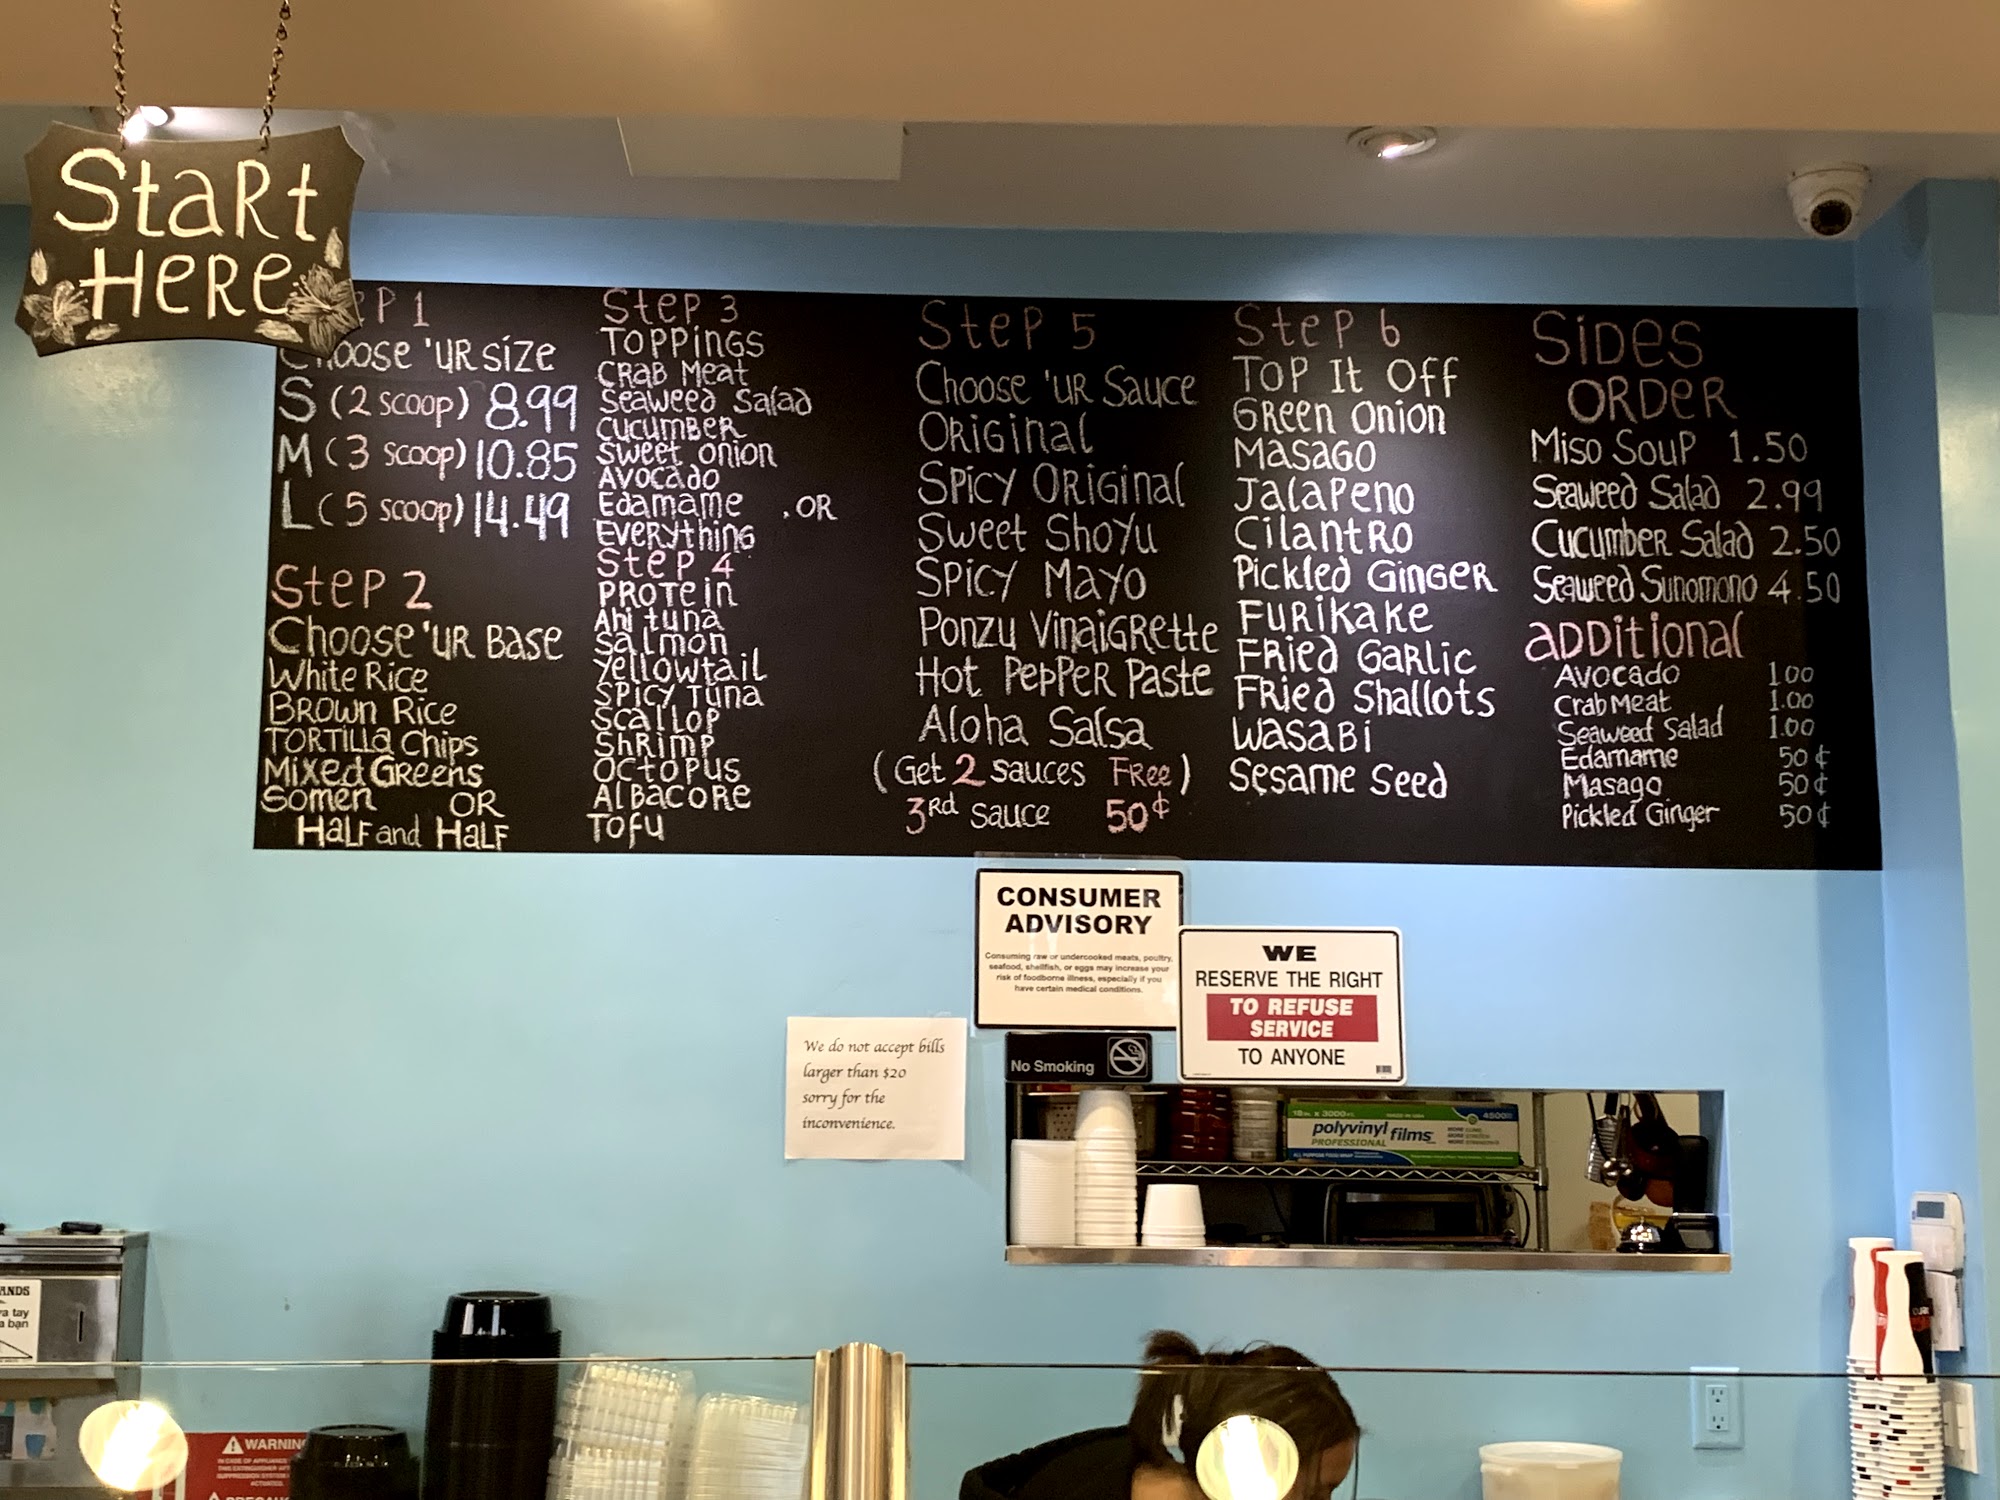 Start
Here
eP 1
Choose 'ur size
S (2 scoop) 8.99
M (3 scoop) 10.85
L (5 scoop) 14.49
Step 2
Choose 'ur Base
White Rice
Brown Rice
Tortilla Chips
Mixed Greens
Somen OR
Half and Half
Step 3
Toppings
Crab Meat
Seaweed Salad
Cucumber
Sweet Onion
Avocado
Edamame , OR
Everything
Step 4
Protein
Ahi tuna
Salmon
Yellowtail
Spicy Tuna
Scallop
Shrimp
Octopus
Albacore
Tofu
Step 5
Choose 'ur Sauce
Original
Spicy Original
Sweet Shoyu
Spicy Mayo
Ponzu Vinaigrette
Hot Pepper Paste
Aloha Salsa
(Get 2 sauces Free)
3rd sauce 50¢
Step 6
Top It Off
Green Onion
Masago
Jalapeno
Cilantro
Pickled Ginger
Furikake
Fried Garlic
Fried Shallots
Wasabi
Sesame Seed
Sides
Order
Miso Soup 1.50
Seaweed Salad 2.99
Cucumber Salad 2.50
Seaweed Sunomono 4.50
Additional
Avocado 1.00
Crab Meat 1.00
Seaweed Salad 1.00
Edamame 50¢
Masago 50¢
Pickled Ginger 50¢
CONSUMER
ADVISORY
Consuming raw or undercooked meats, poultry,
seafood, shellfish, or eggs may increase your
risk of foodborne illness, especially if you
have certain medical conditions.
WE
RESERVE THE RIGHT
TO REFUSE
SERVICE
TO ANYONE
No Smoking
We do not accept bills
larger than $20
sorry for the
inconvenience.
18in. x 3000ft.
polyvinyl films
PROFESSIONAL
ANDS
a tay
a bạn
WARNING
IN CASE OF APPLIANCE